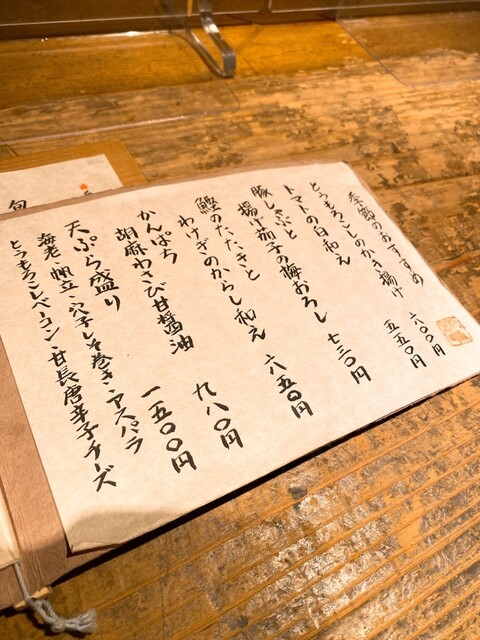 季節のおすすめ
とうもろこしのかき揚げ 六〇〇円
トマトの白和え 五五〇円
豚しゃぶと
揚げ茄子の梅おろし 七二〇円
鰹のたたきと
わけぎのからし和え 六五〇円
かんぱち
胡麻わさび甘醤油 九八〇円
天ぷら盛り 一五〇〇円
海老・帆立・穴子しそ巻き・アスパラ
とうもろこしベーコン・甘長唐辛子チーズ
旬